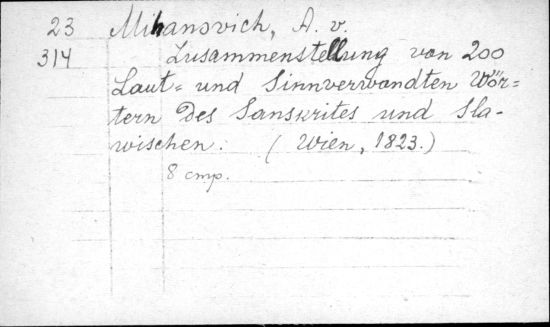 23 Mihanovich, A. v.
314 Zusammenstellung von 200
Laut= und Sinnverwandten Wör=
tern des Sanskrites und Sla-
wischen. (Wien, 1823.)
8 cmp.